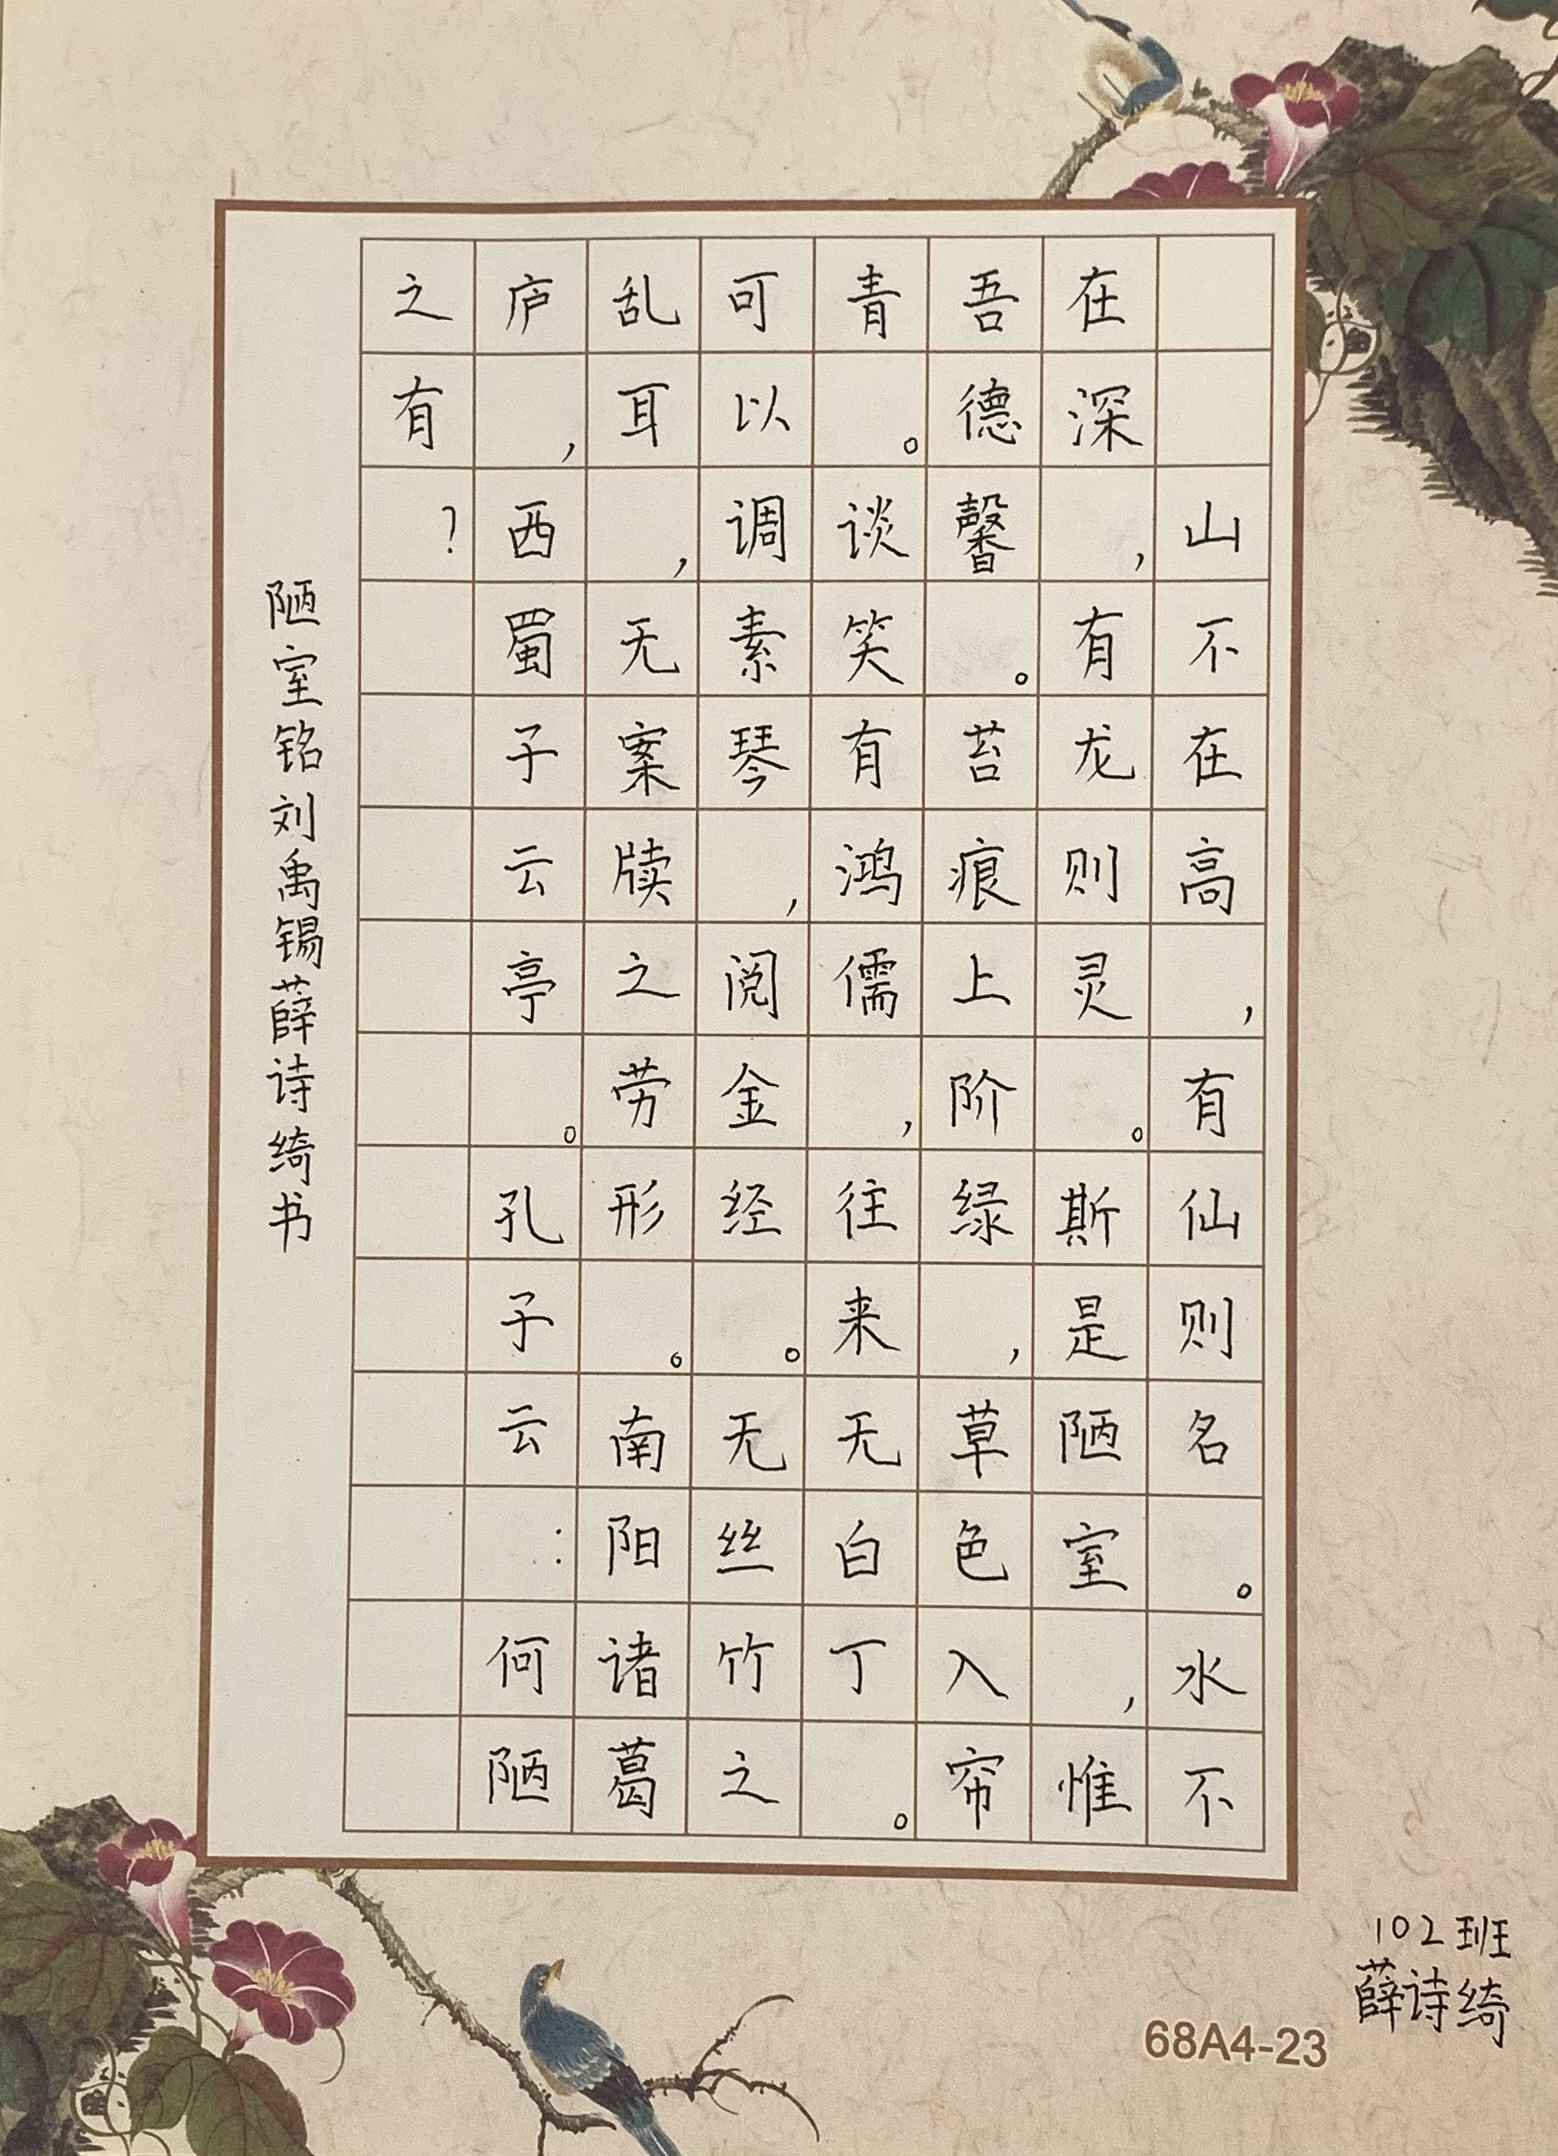 山不在高，有仙则名。水不
在深，有龙则灵。斯是陋室，惟
吾德馨。苔痕上阶绿，草色入帘
青。谈笑有鸿儒，往来无白丁。
可以调素琴，阅金经。无丝竹之
乱耳，无案牍之劳形。南阳诸葛
庐，西蜀子云亭。孔子云：何陋
之有？
陋室铭刘禹锡薛诗绮书
102班
薛诗绮
68A4-23